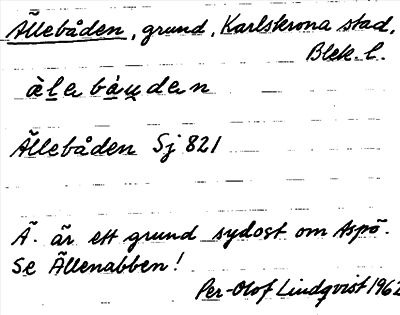 Ällebåden, grund, Karlskrona stad,
Blek. l.
àle bá̀u̯den
Ällebåden Sj 821
Ä. är ett grund sydost om Aspö.
Se Ällenabben!
Per-Olof Lindqvist 1962